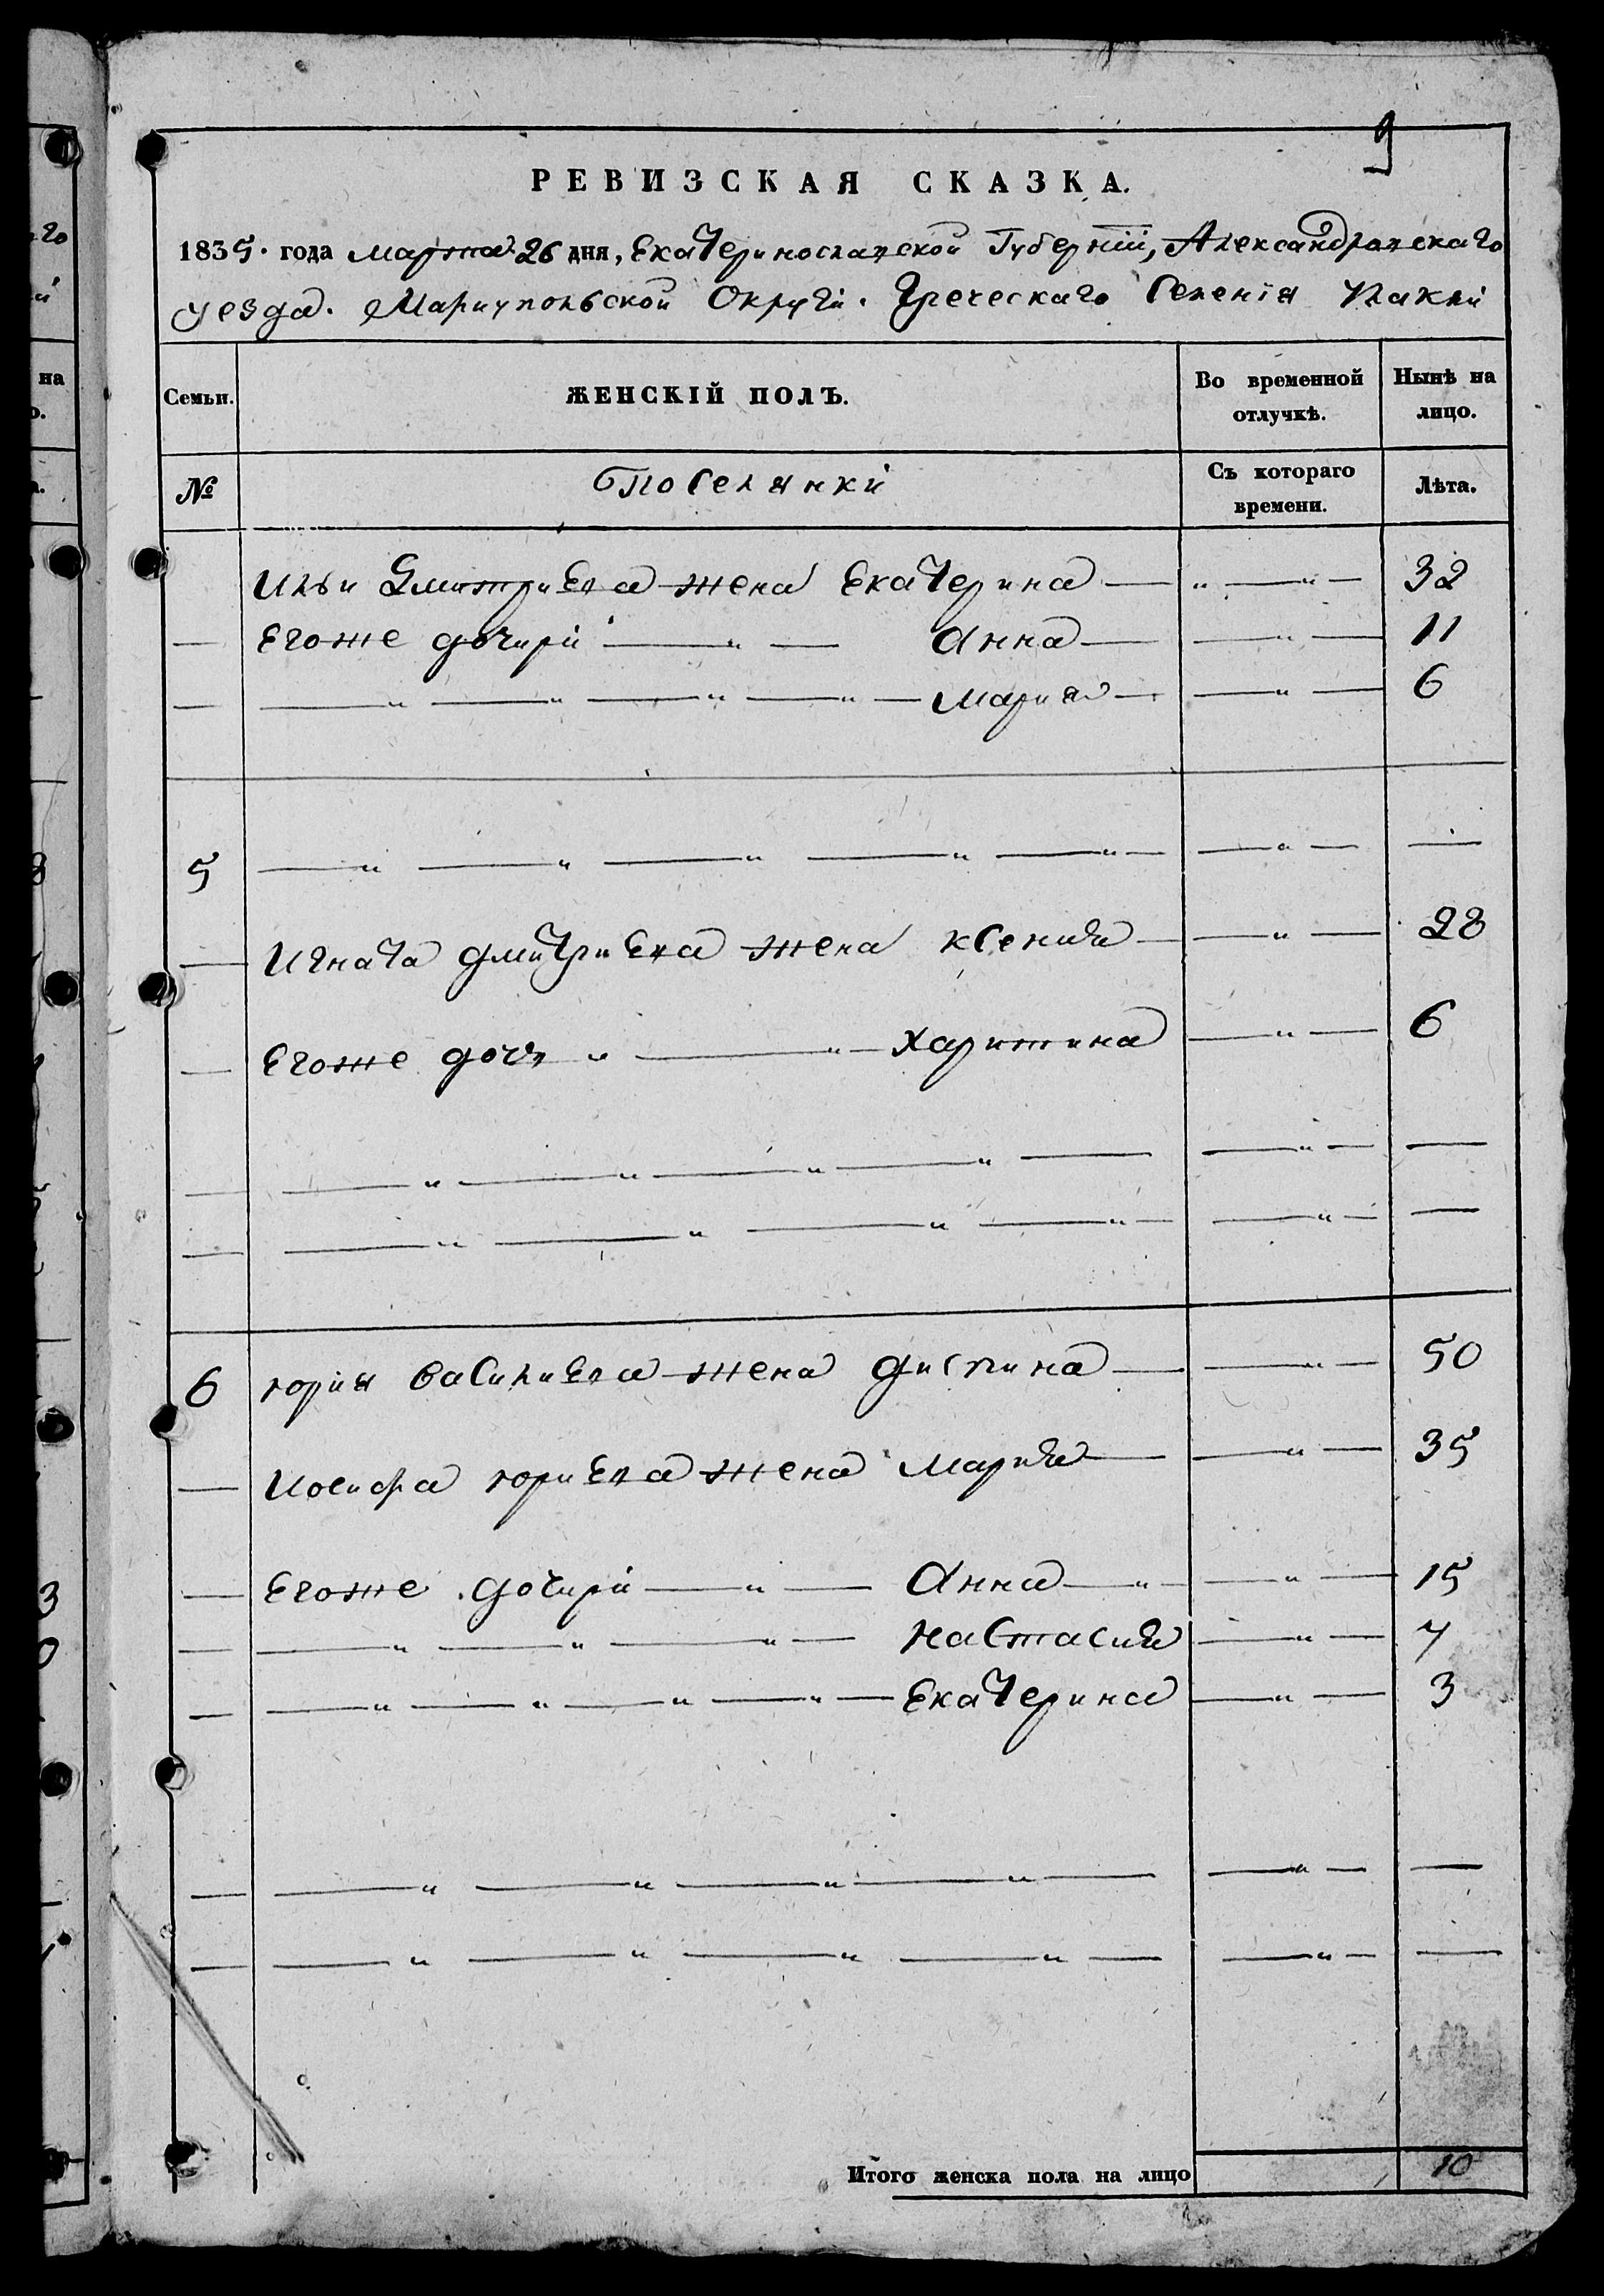 9
РЕВИЗСКАЯ СКАЗКА.
1835. года марта 26 дня, Екатеринославской Губернiи, Александровскаго
уезда. Мариупольской Округи. Греческаго Селенiя
Семьи. ЖЕНСКІЙ ПОЛЪ. Во временной отлучкѣ. Нынѣ на лицо.
№ Поселянки Съ котораго времени. Лѣта.
Ильи Дмитриева жена Екатерина — „ — „ — 32
— Егоже дочири — „ — Анна — — „ — 11
— — „ — „ — „ — „ — Мария — — „ — 6
5 — „ — „ — „ — „ — „ — — „ — —
— Игната дмитриева жена Ксения — — „ — 28
— Егоже дочь „ — „ — Харитина — „ — 6
— — „ — „ — „ — „ — — „ — —
— — „ — „ — „ — „ — — „ — —
6 юрия василиева жена диспина — — „ — 50
— Иосифа юриева жена Мария — — „ — 35
— Егоже дочири — „ — Анна — „ — — „ — 15
— — „ — „ — „ — Настасия — „ — 7
— — „ — „ — „ — „ — Екатерина — „ — 3
— — „ — „ — „ — „ — — „ — —
— — „ — „ — „ — „ — — „ — —
Итого женска пола на лицо 10